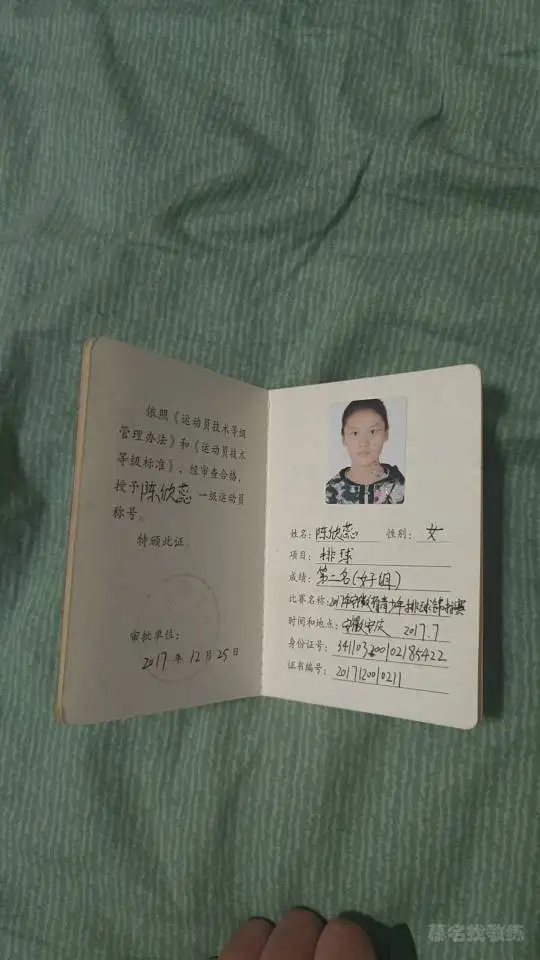 依照《运动员技术等级
管理办法》和《运动员技术
等级标准》，经审查合格，
授予陈欣蕊 一级运动员
称号。
特颁此证。
审批单位：
2017 年 12 月 25 日
姓名：陈欣蕊 性别：女
项目：排球
成绩：第二名(女子组)
比赛名称：2017年安徽省青少年排球锦标赛
时间和地点：安徽安庆 2017.7
身份证号：341103200102185422
证书编号：2017120010211
慕名找教练